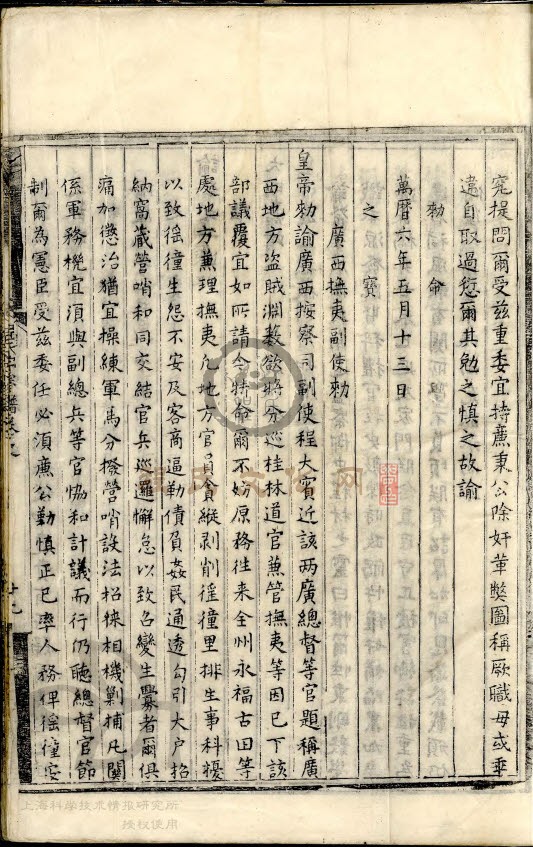 究提問爾受茲重委宜持廉秉公除奸革獘圖稱厥職毋或乖
違自取過愆爾其勉之慎之故諭
勑命
萬曆六年五月十三日
之寶
廣西撫夷副使勑
皇帝勑諭廣西按察司副使程大賓近該两廣總督等官題稱廣
西地方盜賊淵藪欲將分巡桂林道官兼管撫夷等因已下該
部議覆宜如所請今特命爾不妨原務往来全州永福古田等
處地方兼理撫夷凢地方官員貪縱剥削徭獞里排生事科擾
以致徭獞生怨不安及客商逼勒債負姦民通透勾引大户招
納窩藏營哨和同交結官兵巡邏懈怠以致召變生釁者爾俱
痛加懲治猶宜操練軍馬分撥營哨設法招徠相機剿捕凢關
係軍務機宜須與副總兵等官恊和計議而行仍聽總督官節
制爾為憲臣受兹委任必須廉公勤慎正已率人務俾徭獞安
上海科学技术情报研究所
授权使用